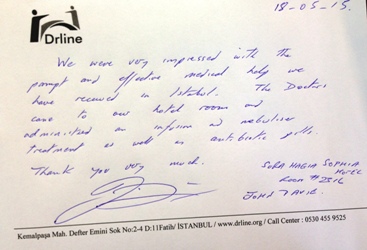 Drline
18-05-15.
We were very impressed with the
prompt and effective medical help we
have received in Istabul. The Doctors
came to our hotel room and
administered an infusion ad nebuliser
treatment as well as antibiotic pills.
Thank you very much.
SURA HAGIA SOPHIA
HOTEL
ROOM
JOHN
Kemalpaşa Mah. Defter Emini Sok No:2-4 D:11Fatih/ İSTANBUL / www.drline.org / Call Center : 0530 455 9525